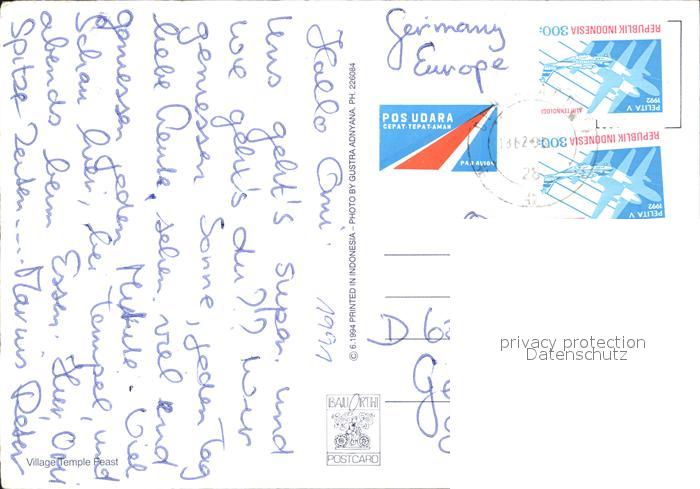 Hallo Omi.
Uns geht's super. und
wie geht's du?? Wir
genießen Sonne, jeden Tag
liebe Leute, sehen viel und
genießen jeden Minute. Viel
Schau hier, bei Tempel, und
abends beim Essen. Omi
Spitze Zeiten... Marius Peter
1991
Germany
Europe
D 62
Ge
© 6.1994 PRINTED IN INDONESIA – PHOTO BY GUSTRA ADNYANA. PH. 226084
BALI ORTHI
POSTCARD
Village Temple Feast
POS UDARA
CEPAT-TEPAT-AMAN
PAR AVION
REPUBLIK INDONESIA
300
ALIH TEKNOLOGI
PELITA V
1992
REPUBLIK INDONESIA
300
PELITA V
1992
28
privacy protection
Datenschutz